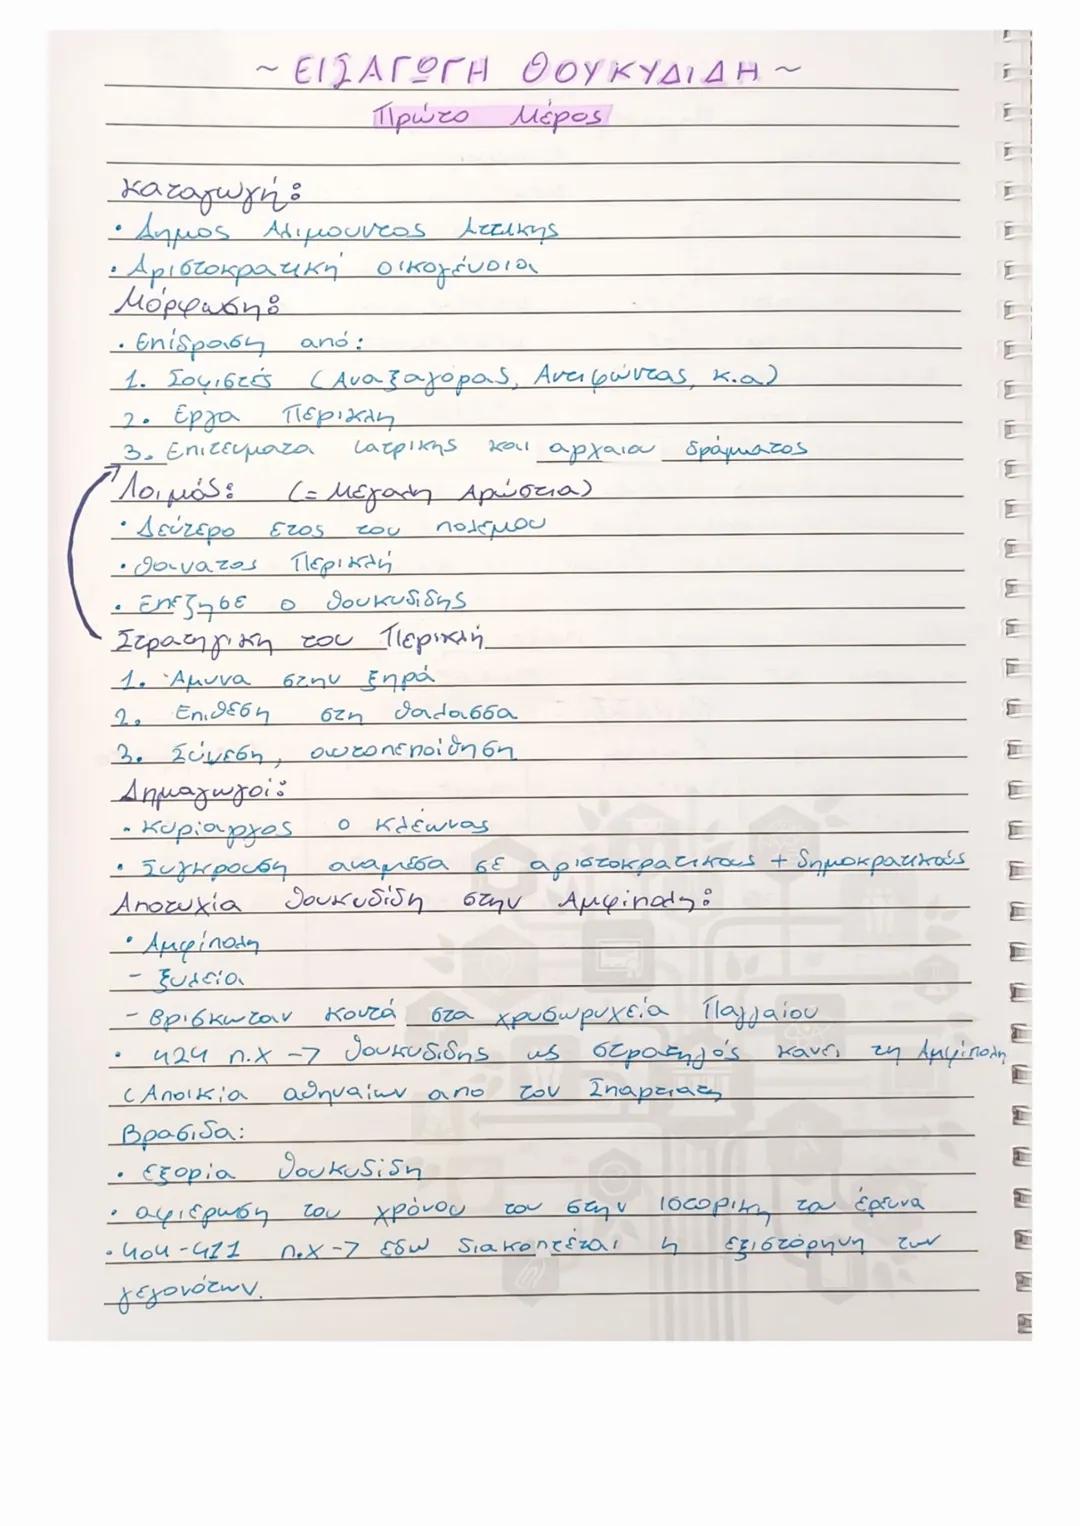 ~ ΕΙΣΑΓΩΓΗ ΘΟΥΚΥΔΙΔΗ ~
Πρώτο Μέρος
Καταγωγή:
• Δημος Αλιμουντος Αττικης
• Αριστοκρατική οικογένοια
Μόρφωση:
• Επίδραση από:
1. Σοφιστές (Αναξαγόρας, Αντιφώντας, κ.α)
2. Εργα Περικλη
3. Επιτευματα ιατρικης και αρχαιου δράματος
Λοιμός: (= Μεγαλη Αρώστια)
• Δεύτερο ετος του πολεμου
• Θανατος Περικλή
• Επεζησε ο Θουκυδιδης
Στρατηγικη του Περικλή
1. Αμυνα στην ξηρά
2. Επιθεση στη θαλασσα
3. Σύνεση, αυτοπεποίθηση
Δημαγωγοί:
• Κυρίαρχος ο Κλέωνας
• Συγκρουση αναμεσα σε αριστοκρατικους + δημοκρατικούς
Αποτυχία Θουκυδίδη στην Αμφίπολη:
• Αμφίπολη
- ξυλεία
- Βρισκωταν κοντά στα χρυσωρυχεία Παγγαίου
• 424 π.Χ → Θουκυδιδης ως στρατηγός χανει τη Αμφίπολη
(Αποικία αθηναίων απο τον Σπαρτιατη
Βρασιδα:
• εξορία Θουκυδίδη
• αφιέρωση του χρόνου του στην ιστορικη του έρευνα
• 404-411 π.Χ → εδω διακοπτεται η εξιστόρηνη των
γεγονότων.